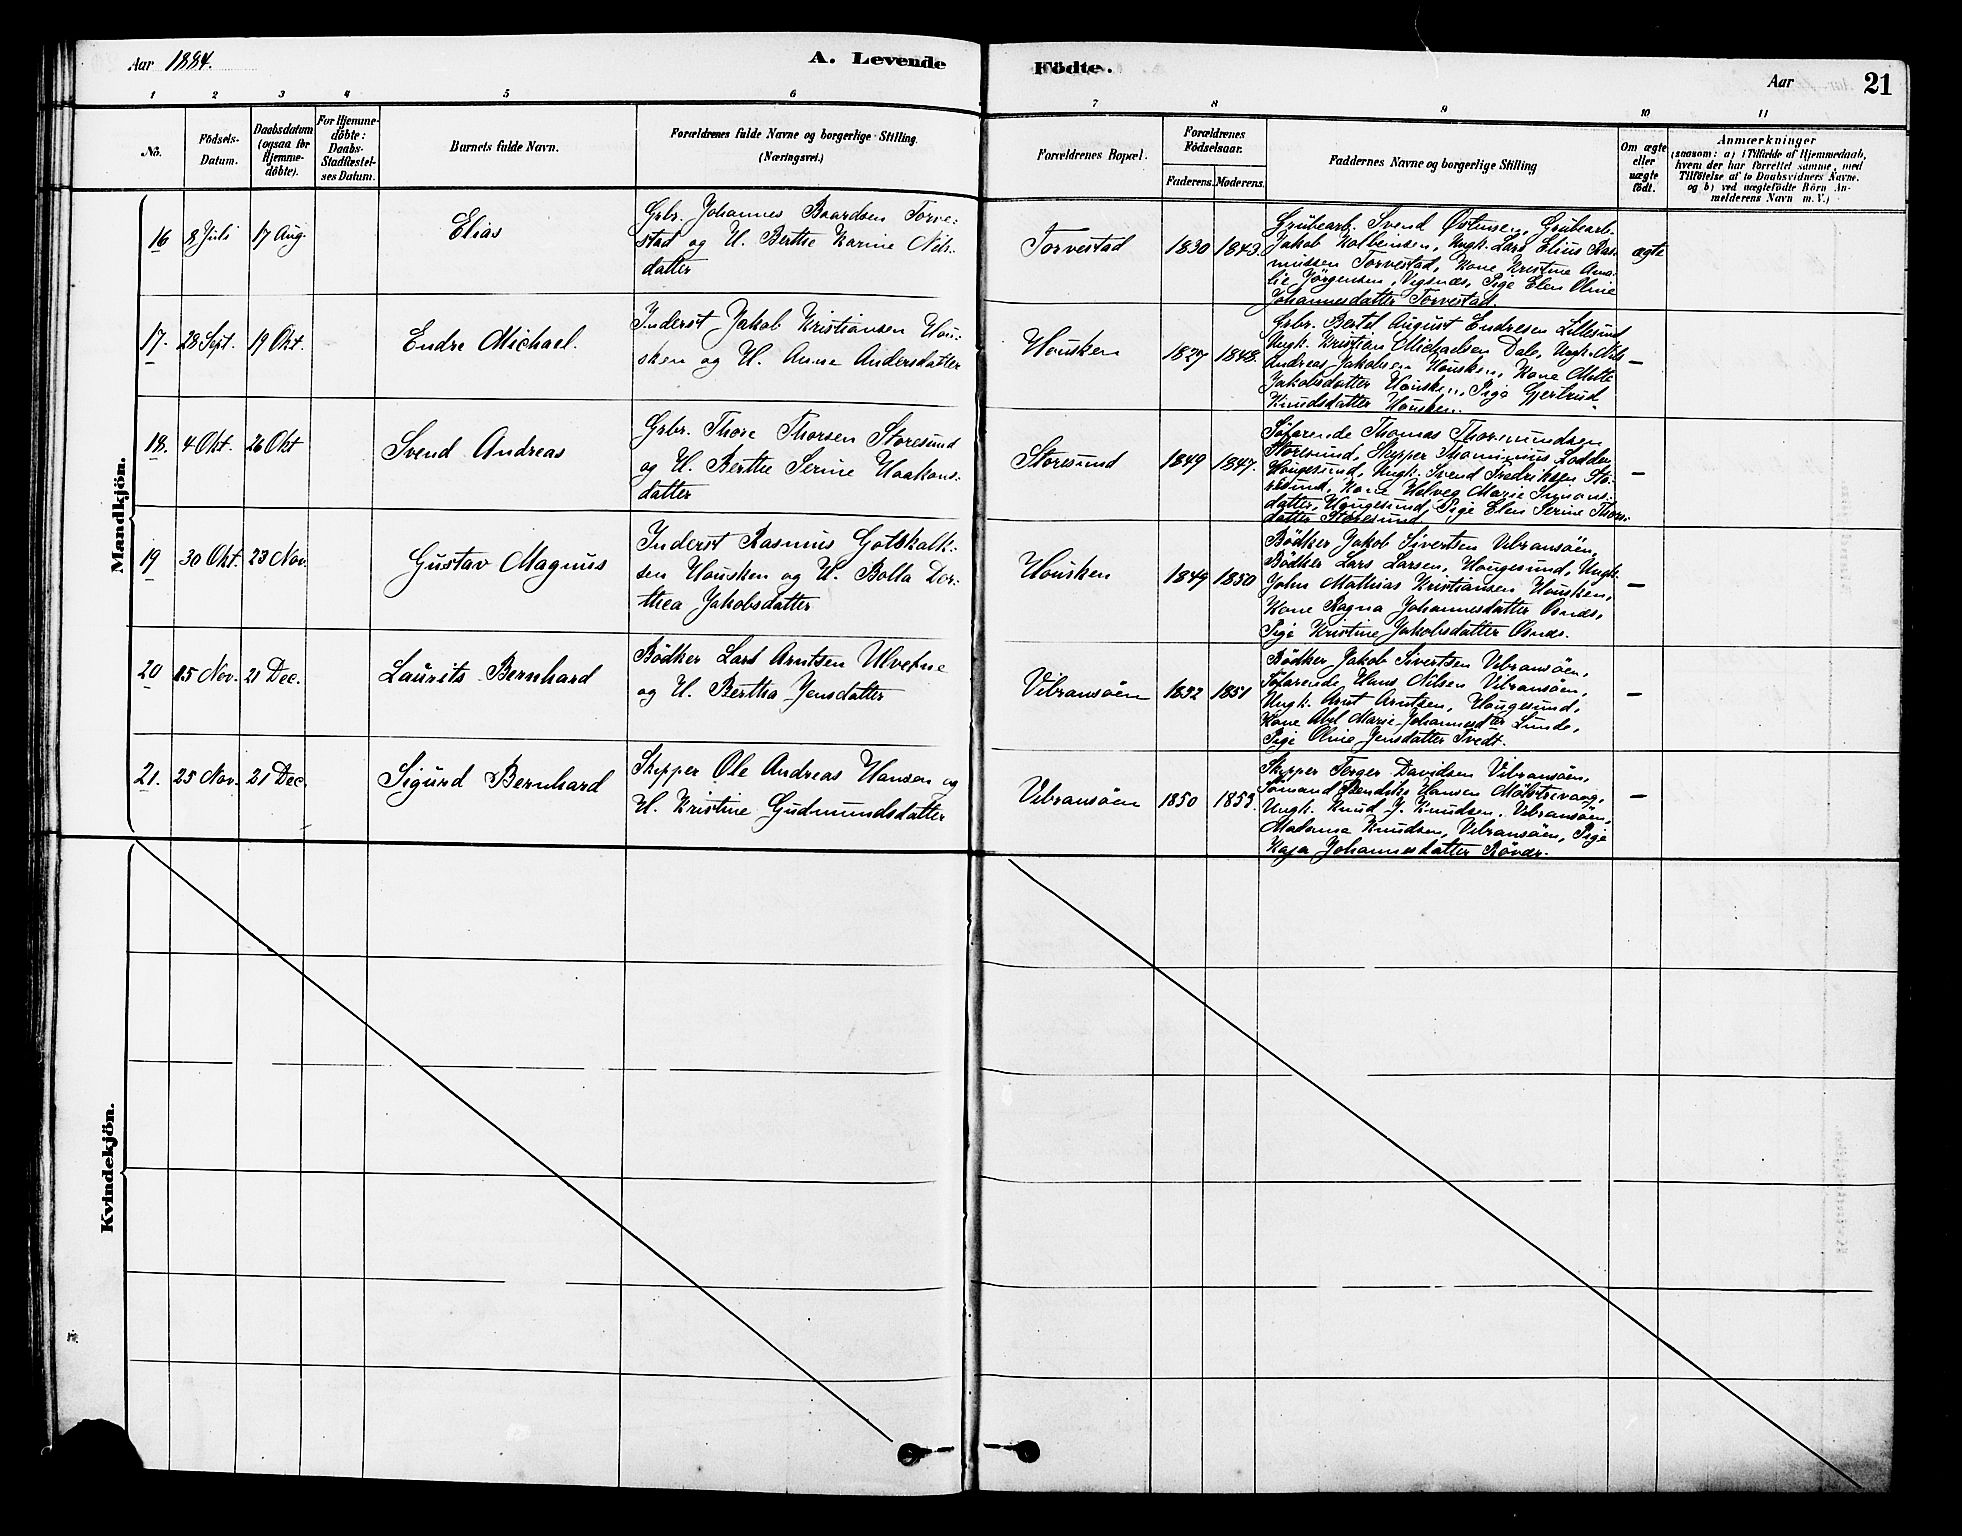 Aar 1884.
A. Levende
Födte.
Aar
21
1 2 3 4 5 6
7 8 9 10 11
No.
Födsels-
Datum.
Daabsdatum
(ogsaa for
Hjemme-
döbte).
For Hjemme-
döbte:
Daabs-
Stadfæstel-
ses Datum.
Barnets fulde Navn.
Forældrenes fulde Navne og borgerlige Stilling.
(Næringsvei.)
Forældrenes Bopæl.
Forældrenes
Födselsaar.
Faderens. Moderens.
Faddernes Navne og borgerlige Stilling
Om ægte
eller
uægte
födt.
Anmærkninger
(saasom: a) i Tilfælde af Hjemmedaab,
hvem der har forrettet samme, med
Tilföielse af to Daabsvidners Navne.
og b) ved uægtefödte Börn An-
melderens Navn m. V.)
Mandkjön.
16 8 Juli 17 Aug.
Elias
Grbr. Johannes Baardsen Torve-
stad og H. Berthe Karine Nils-
datter
Torvestad
1830 1843.
Grubearb. Svend Östensen, Grubearb.
Jakob Kolbeinsen, Ungk. Lars Elius Ras-
mussen Torvestad, Kone Kristine Ama-
lie Jörgensen, Vigsnæs, Pige Elen Oline
Johannesdatter Torvestad.
ægte
17. 28 Sept. 19 Okt.
Endre Michael.
Inderst Jakob Kristiansen Hou-
sken og H. Anne Andersdatter
Housken
1837 1848.
Grbr. Bertel August Endresen Lillesund
Ungk. Kristien Michaelsen Dale, Ungk. Nils
Andreas Jakobsen Housken, Kone Mette
Jakobsdatter Housken, Pige Gjertrud
Knudsdatter Housken.
—
18. 4 Okt. 26 Okt
Svend Andreas
Grbr. Thore Thorsen Storesund
og H. Berthe Serine Haakons-
datter
Storesund
1849 1847.
Söfarende Thomas Thormundsen
Storesund, Skipper Thommus Lodden
Hougesund, Ungk. Svend Fredriksen Sto-
resund, Kone Helveg Marie Simons-
datter, Hougesund, Pige Elen Serine Thors-
datter Storesund
—
19 30 Okt. 23 Nov.
Gustav Magnus
Inderst Rasmus Gotskalk-
sen Housken og H. Bolla Dor-
thea Jakobsdatter
Housken
1849 1850
Bödker Jakob Sivertsen Vibransöen,
Bödker Lars Larsen, Hougesund, Ungk.
John Mathias Kristiansen Housken,
Kone Ragna Johannesdatter Osnes,
Pige Kristine Jakobsdatter Osnes.
—
20 15 Nov. 21 Dec.
Laurits Bernhard
Bödker Lars Arntsen Ulvetne
og H. Bertha Jensdatter
Vibransöen
1852 1851
Bödker Jakob Sivertsen Vibransöen,
Söfarende Hans Nilsen Vibransöen,
Ungk. Arnt Arntsen, Hougesund,
Kone Abel Marie Johannesdtr Lunde,
Pige Oline Jensdatter Tvedt.
—
21. 25 Nov. 21 Dec.
Sigurd Bernhard
Skipper Ole Andreas Hansen og
H. Kristine Gudmundsdatter
Vibransöen
1850 1853.
Skipper Torger Davidsen Vibransöen,
Sömand Bendiks Hansen Mölstrevaag,
Ungk. Knud J. Knudsen, Vibransöen,
Madame Knudsen, Vibransöen, Pige
Kaja Johannesdatter Rövær.
—
Kvindekjön.